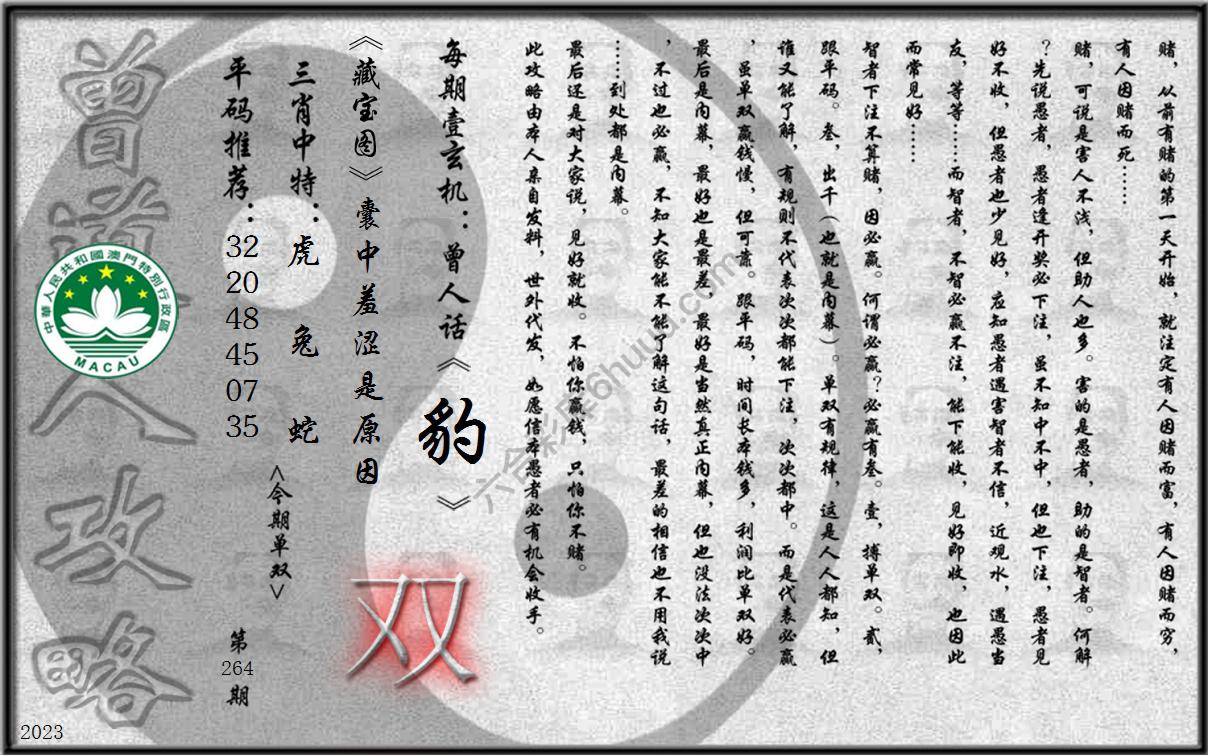 赌，从前有赌的第一天开始，就注定有人因赌而富，有人因赌而穷，
有人因赌而死……
赌，可说是害人不浅，但助人也多。害的是愚者，助的是智者。何解
？先说愚者，愚者逢开奖必下注，虽不知中不中，但也下注，愚者见
好不收，但愚者也少见好，应知愚者遇害智者不信，近观水，遇愚当
友，等等……而智者，不智必赢不注，能下能收，见好即收，也因此
而常见好……
智者下注不算赌，因必赢。何谓必赢？必赢有叁。壹，搏单双。贰，
跟平码。叁，出千（也就是内幕）。单双有规律，这是人人都知，但
谁又能了解，有规则不代表次次都能下注，次次都中。而是代表必赢
，虽单双赢钱慢，但可靠。跟平码，时间长本钱多，利润比单双好。
最后是内幕，最好也是最差，最好是当然真正内幕，但也没法次次中
，不过也必赢，不知大家能不能了解这句话，最差的相信也不用我说
……到处都是内幕。
最后还是对大家说，见好就收。不怕你赢钱，只怕你不赌。
此攻略由本人亲自发料，世外代发，如愿信本愚者必有机会收手。
每期壹玄机：曾人话《豹》
《藏宝图》囊中羞涩是原因
双
三肖中特：虎 兔 蛇
<今期单双>
平码推荐：32 20 48 45 07 35
第264期
曾道人攻略
中華人民共和國澳門特別行政區
MACAU
2023
六合彩库6huuu.com